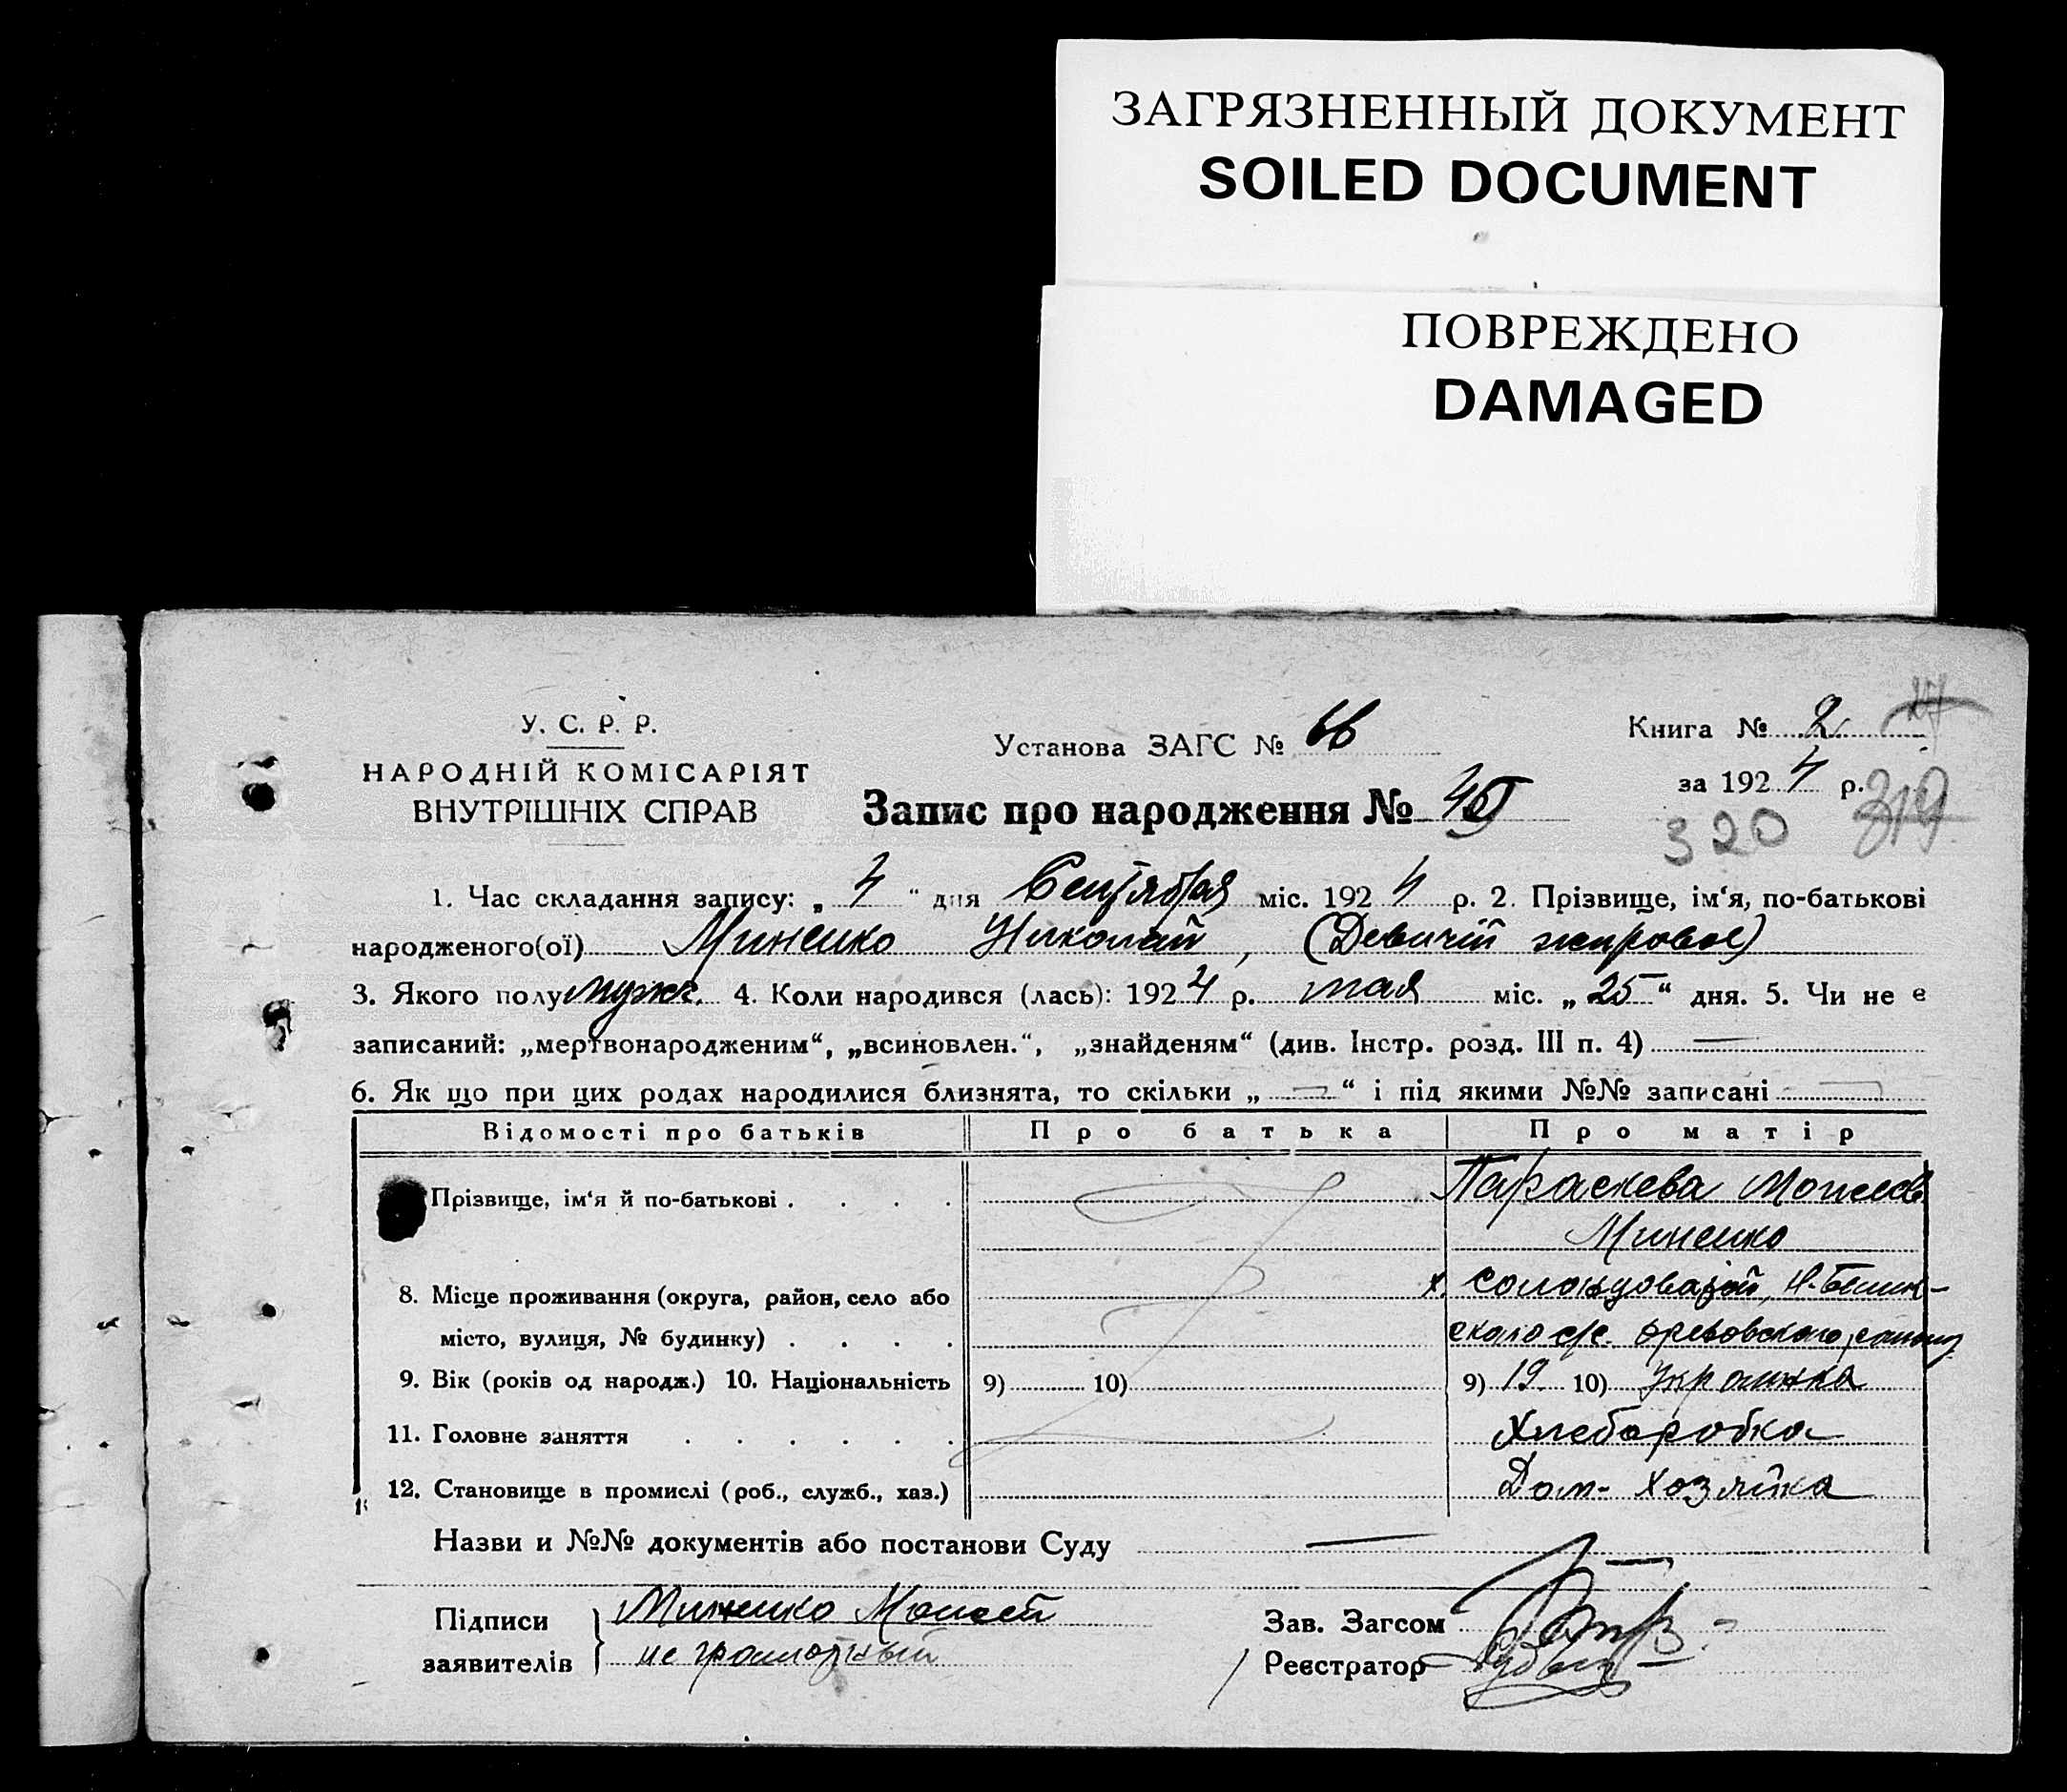 ЗАГРЯЗНЕННЫЙ ДОКУМЕНТ
SOILED DOCUMENT
ПОВРЕЖДЕНО
DAMAGED
У. С. Р. Р.
НАРОДНІЙ КОМІСАРІЯТ
ВНУТРІШНІХ СПРАВ
Установа ЗАГС № 66
Запис про народження №
Книга № 2
за 1924 р.
320 319
1. Час складання запису: „4" дня Сентября міс. 1924 р. 2. Прізвище, ім'я, по-батькові
народженого(ої) Миненко Николай, (Девичій
3. Якого полу мужс. 4. Коли народився (лась): 1924 р. мая міс. „25" дня. 5. Чи не є
записаний: „мертвонародженим", „всиновлен.", „знайденям" (див. Інстр. розд. III п. 4) —
6. Як що при цих родах народилися близнята, то скільки „—" і під якими №№ записані —
Відомості про батьків Про батька Про матір
Прізвище, ім'я й по-батькові . . . . Параскева Моисеев
Миненко
8. Місце проживання (округа, район, село або х.
місто, вулиця, № будинку) . . . . ского с/с. Ореховского
9. Вік (років од народж.) 10. Національність 9) 10) 9) 19 10) Украинка
11. Головне заняття . . . . . . Хлеборобка
12. Становище в промислі (роб., служб., хаз.) Дом- хозяйка
Назви и №№ документів або постанови Суду —
Підписи Миненко Моисей
заявителів не грамотный
Зав. Загсом
Реєстратор